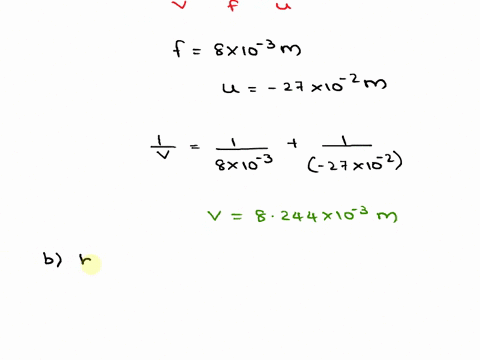 v f u
f = 8×10⁻³ m
u = -27×10⁻² m
1/v = 1/(8×10⁻³) + 1/(-27×10⁻²)
v = 8.244×10⁻³ m
b)